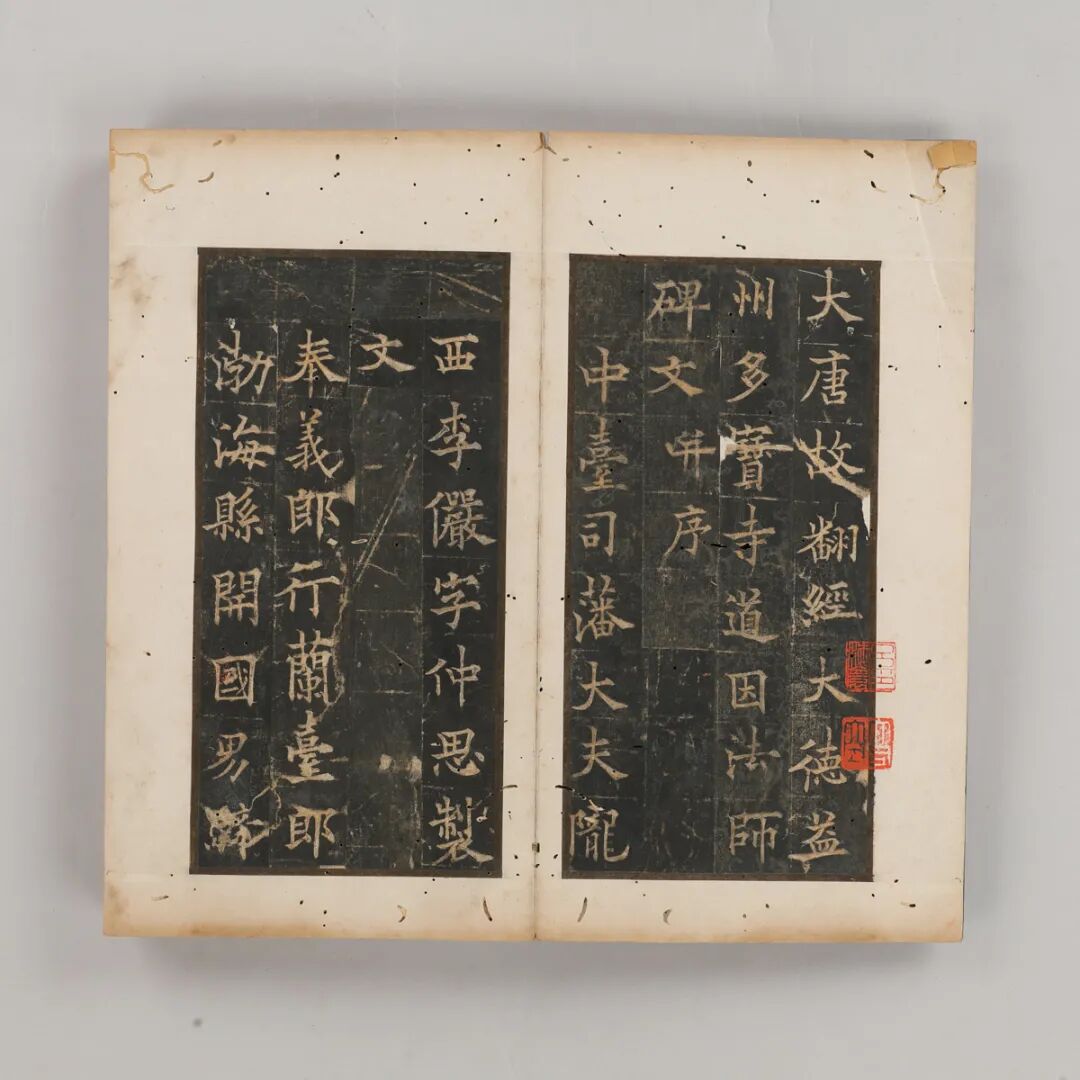 大唐故翻經大德益
州多寶寺道因法師
碑文并序
中臺司藩大夫隴
西李儼字仲思製
文
奉義郎行蘭臺郎
渤海縣開國男